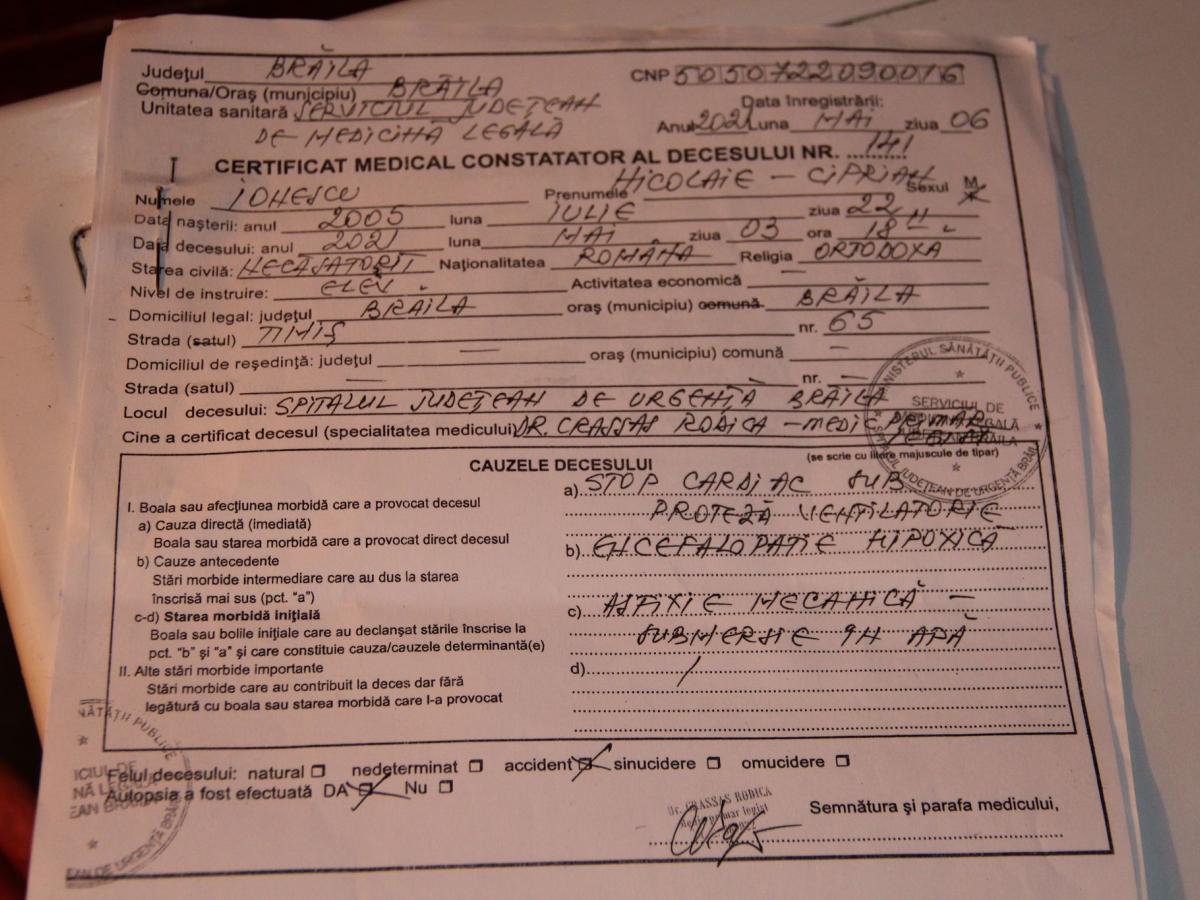 Judeţul BRĂILA CNP 5050722090016
Comuna/Oraş (municipiu) BRĂILA
Unitatea sanitară SERVICIUL JUDEŢEAN Data înregistrării:
DE MEDICINĂ LEGALĂ Anul 2021 Luna MAI ziua 06
CERTIFICAT MEDICAL CONSTATATOR AL DECESULUI NR. 141
Numele IONESCU Prenumele NICOLAIE - CIPRIAN Sexul M
Data naşterii: anul 2005 luna IULIE ziua 22
Data decesului: anul 2021 luna MAI ziua 03 ora 18
Starea civilă: NECĂSĂTORIT Naţionalitatea ROMÂNĂ Religia ORTODOXA
Nivel de instruire: ELEV Activitatea economică —
Domiciliul legal: judeţul BRAILA oraş (municipiu) comună BRĂILA
Strada (satul) TIMIŞ nr. 65
Domiciliul de reşedinţă: judeţul — oraş (municipiu) comună —
Strada (satul) — nr. —
Locul decesului: SPITALUL JUDEŢEAN DE URGENŢĂ BRĂILA
Cine a certificat decesul (specialitatea medicului) DR. CRASSAS RODICA - MEDIC PRIMAR
(se scrie cu litere majuscule de tipar)
MINISTERUL SĂNĂTĂŢII PUBLICE
SPITALUL JUDEŢEAN DE URGENŢĂ BRĂILA
SERVICIUL DE
CAUZELE DECESULUI
I. Boala sau afecţiunea morbidă care a provocat decesul
a) Cauza directă (imediată)
Boala sau starea morbidă care a provocat direct decesul
b) Cauze antecedente
Stări morbide intermediare care au dus la starea
înscrisă mai sus (pct. “a”)
c-d) Starea morbidă iniţială
Boala sau bolile iniţiale care au declanşat stările înscrise la
pct. “b” şi “a” şi care constituie cauza/cauzele determinantă(e)
II. Alte stări morbide importante
Stări morbide care au contribuit la deces dar fără
legătură cu boala sau starea morbidă care l-a provocat
a) STOP CARDIAC SUB
PROTEZĂ VENTILATORIE
b) ENCEFALOPATIE HIPOXICĂ
c) ASFIXIE MECANICĂ -
SUBMERSIE IN APĂ
d) /
Felul decesului: natural nedeterminat accident sinucidere omucidere
Autopsia a fost efectuată DA Nu
Dr. CRASSAS RODICA
medic primar legist
Semnătura şi parafa medicului,